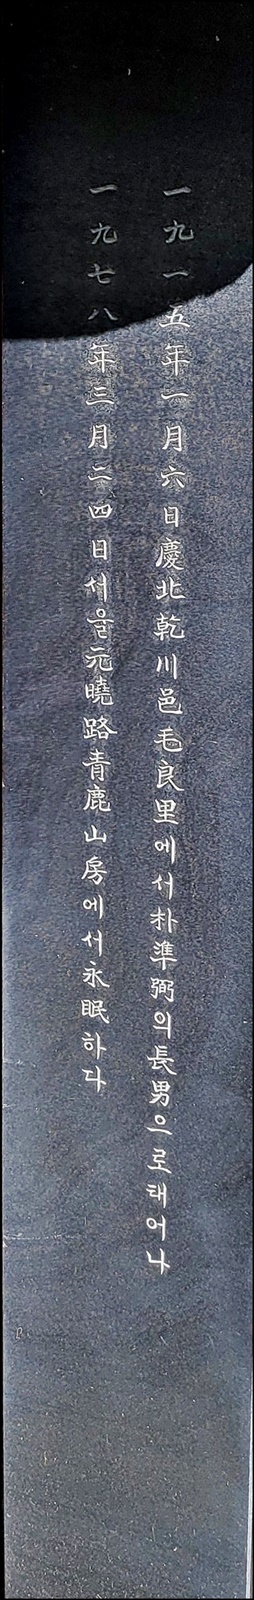 一九一五年一月六日慶北乾川邑毛良里에서朴準弼의長男으로태어나
一九七八年三月二四日서울元曉路靑鹿山房에서永眠하다